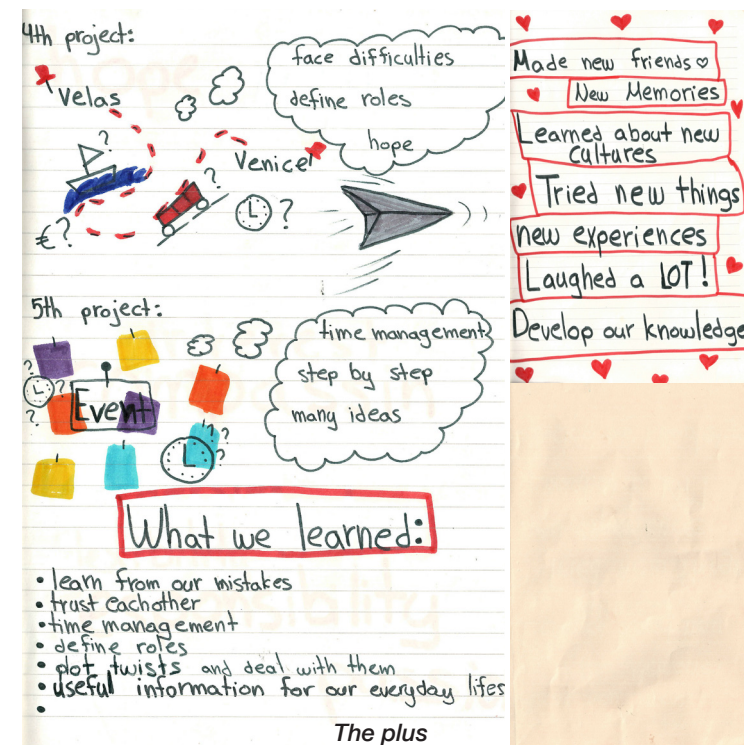 4th project:
Velas
?
?
Venice
€?
?
face difficulties
define roles
hope
5th project:
?
?
?
Event
?
?
?
time management
step by step
many ideas
What we learned:
• learn from our mistakes
• trust eachother
• time management
• define roles
• plot twists and deal with them
• useful information for our everyday lifes
•
The plus
Made new friends ♡
New Memories
Learned about new
cultures
Tried new things
new experiences
Laughed a LOT!
Develop our knowledge